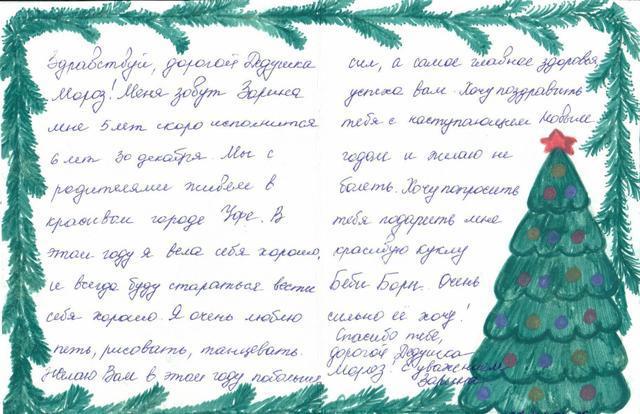 Здравствуй, дорогой Дедушка
Мороз! Меня зовут Зарина
мне 5 лет скоро исполнится
6 лет 30 декабря. Мы с
родителями живём в
красивом городе Уфе. В
этом году я вела себя хорошо,
и всегда буду стараться вести
себя хорошо. Я очень люблю
петь, рисовать, танцевать.
Желаю Вам в этом году побольше
сил, а самое главное здоровья
успеха вам. Хочу поздравить
тебя с наступающим Новым
годом и желаю не
болеть. Хочу попросить
тебя подарить мне
красивую куклу
Беби Борн. Очень
сильно её хочу!
Спасибо тебе,
дорогой Дедушка
Мороз! С уважением
Зарина